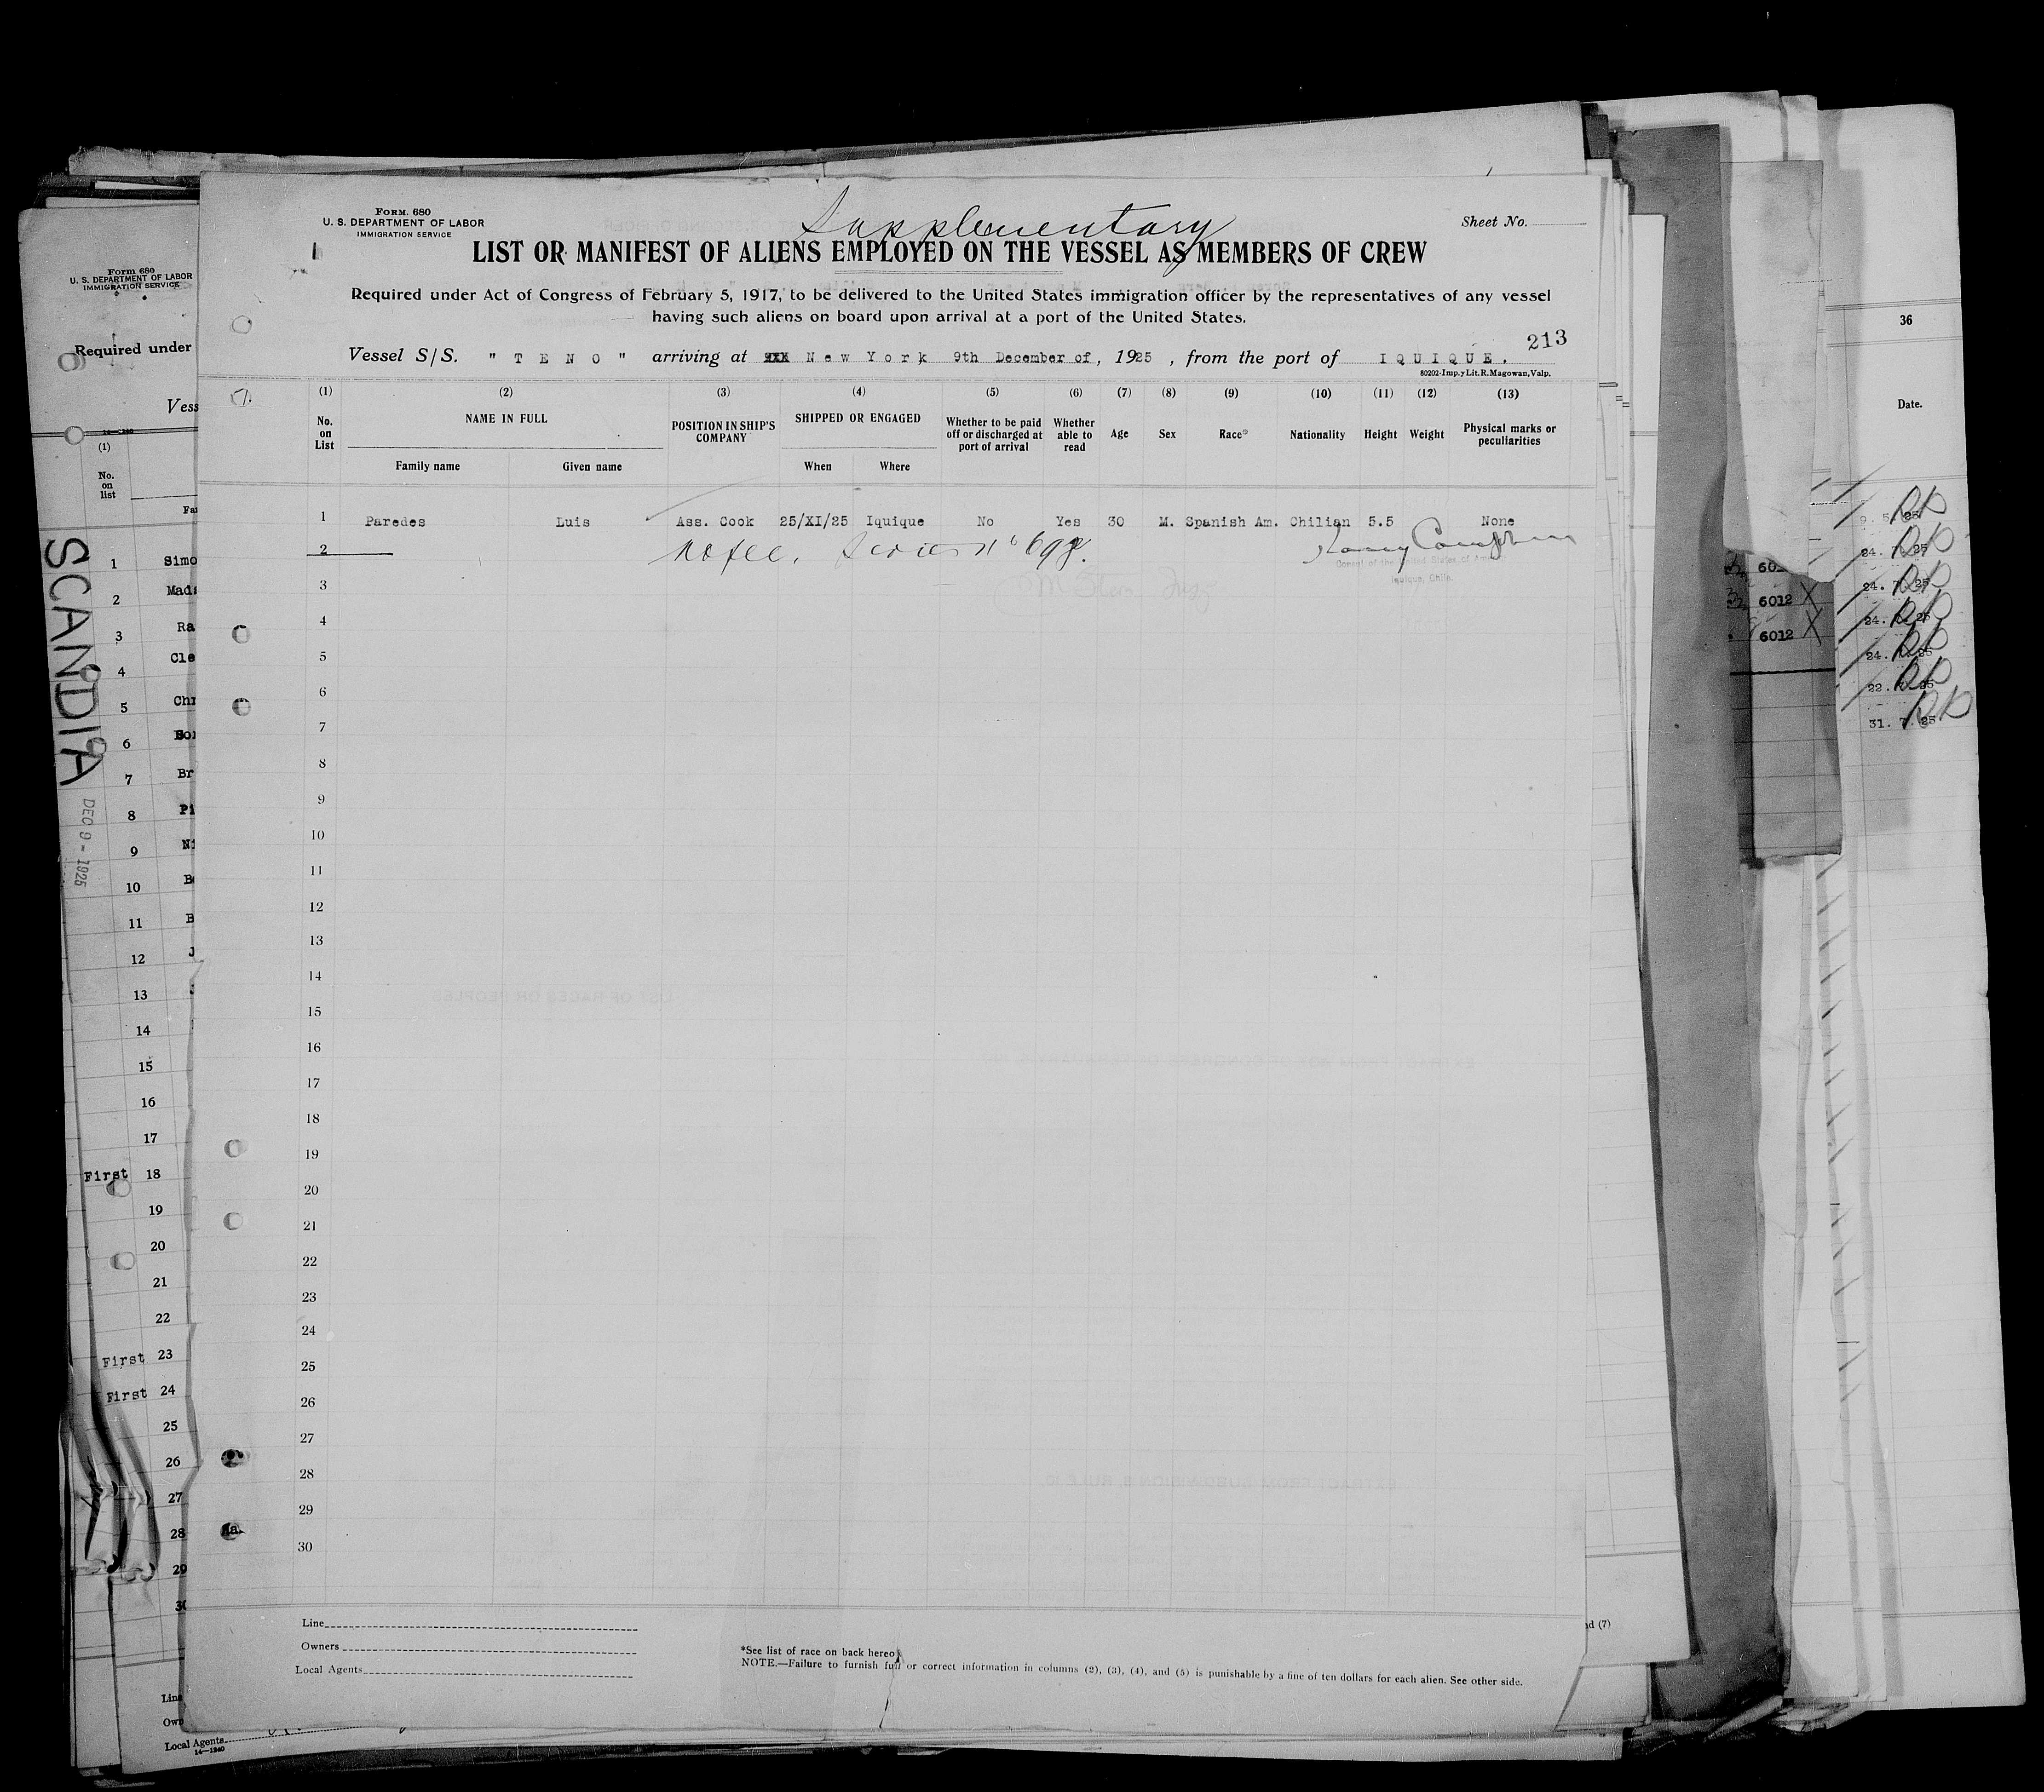 Form. 680
U. S. DEPARTMENT OF LABOR
IMMIGRATION SERVICE
Supplementary
Sheet No.
LIST OR MANIFEST OF ALIENS EMPLOYED ON THE VESSEL AS MEMBERS OF CREW
Required under Act of Congress of February 5, 1917, to be delivered to the United States immigration officer by the representatives of any vessel
having such aliens on board upon arrival at a port of the United States.
213
Vessel S/S. " T E N O " arriving at New York 9th December of, 1925, from the port of IQUIQUE.
80202-Imp.y Lit.R.Magowan,Valp.
(1) (2) (3) (4) (5) (6) (7) (8) (9) (10) (11) (12) (13)
No. on List
NAME IN FULL
Family name Given name
POSITION IN SHIP'S COMPANY
SHIPPED OR ENGAGED
When Where
Whether to be paid off or discharged at port of arrival
Whether able to read
Age Sex Race* Nationality Height Weight
Physical marks or peculiarities
1 Paredes Luis Ass. Cook 25/XI/25 Iquique No Yes 30 M. Spanish Am. Chilian 5.5 None
2 No fee.
Consul of the United States of America
Iquique, Chile.
3
4
5
6
7
8
9
10
11
12
13
14
15
16
17
18
19
20
21
22
23
24
25
26
27
28
29
30
Line
Owners
Local Agents
*See list of race on back hereof
NOTE.—Failure to furnish full or correct information in columns (2), (3), (4), and (5) is punishable by a fine of ten dollars for each alien. See other side.
Form 680
U. S. DEPARTMENT OF LABOR
IMMIGRATION SERVICE
Required under
Vess
14-1240
(1)
No. on list
Fa
SCANDIA
DEC 9 - 1925
1 Simo
2 Mad
3 Ra
4 Cle
5 Chr
6
7 Br
8 Pi
9 Ni
10 B
11 B
12 J
13
14
15
16
17
First 18
19
20
21
22
First 23
First 24
25
26
27
28
29
30
Line
Own
Local Agents
14-1240
36
Date.
24. 7. 25
24. 7. 25
24. 7. 25
22. 7. 25
31. 7. 25
6012 X
6012 X
nd (7)